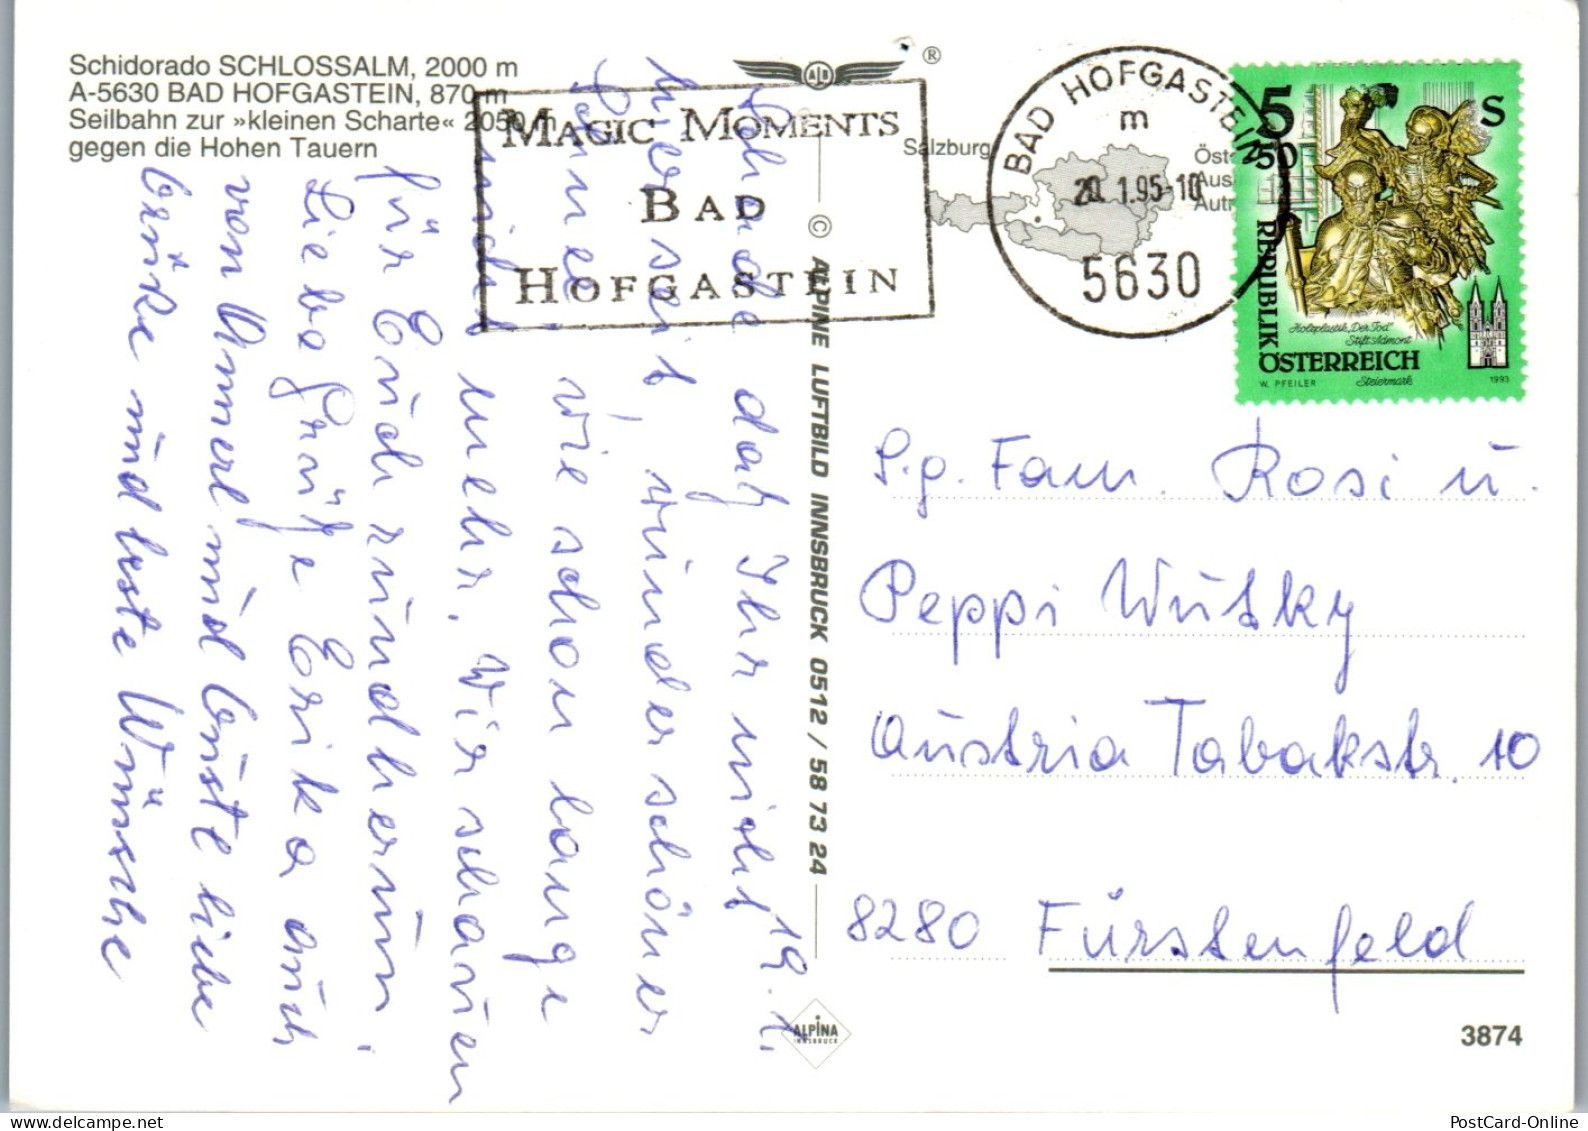 Schidorado SCHLOSSALM, 2000 m
A-5630 BAD HOFGASTEIN, 870 m
Seilbahn zur »kleinen Scharte« 2050 m
gegen die Hohen Tauern
MAGIC MOMENTS
BAD
HOFGASTEIN
AJB
®
Salzburg
BAD HOFGASTEIN
m
20. 1.95-10
5630
Öst
Aus
Autr
5 50 S
REPUBLIK
ÖSTERREICH
Holzplastik „Der Tod"
Stift Admont
Steiermark
W. PFEILER
1993
© ALPINE LUFTBILD INNSBRUCK 0512 / 58 73 24
19.1.
Schade daß Ihr nicht
hier seit, wunderschöner
Schnee wie schon lange
nicht mehr. Wir schauen
für Euch rundherum.
Liebe Grüße Erika auch
von Annerl und Gustl liebe
Grüße und beste Wünsche
S.g. Fam. Rosi u.
Peppi Wutsky
Austria Tabakstr. 10
8280 Fürstenfeld
ALPINA
INNSBRUCK
3874
PostCard-Online